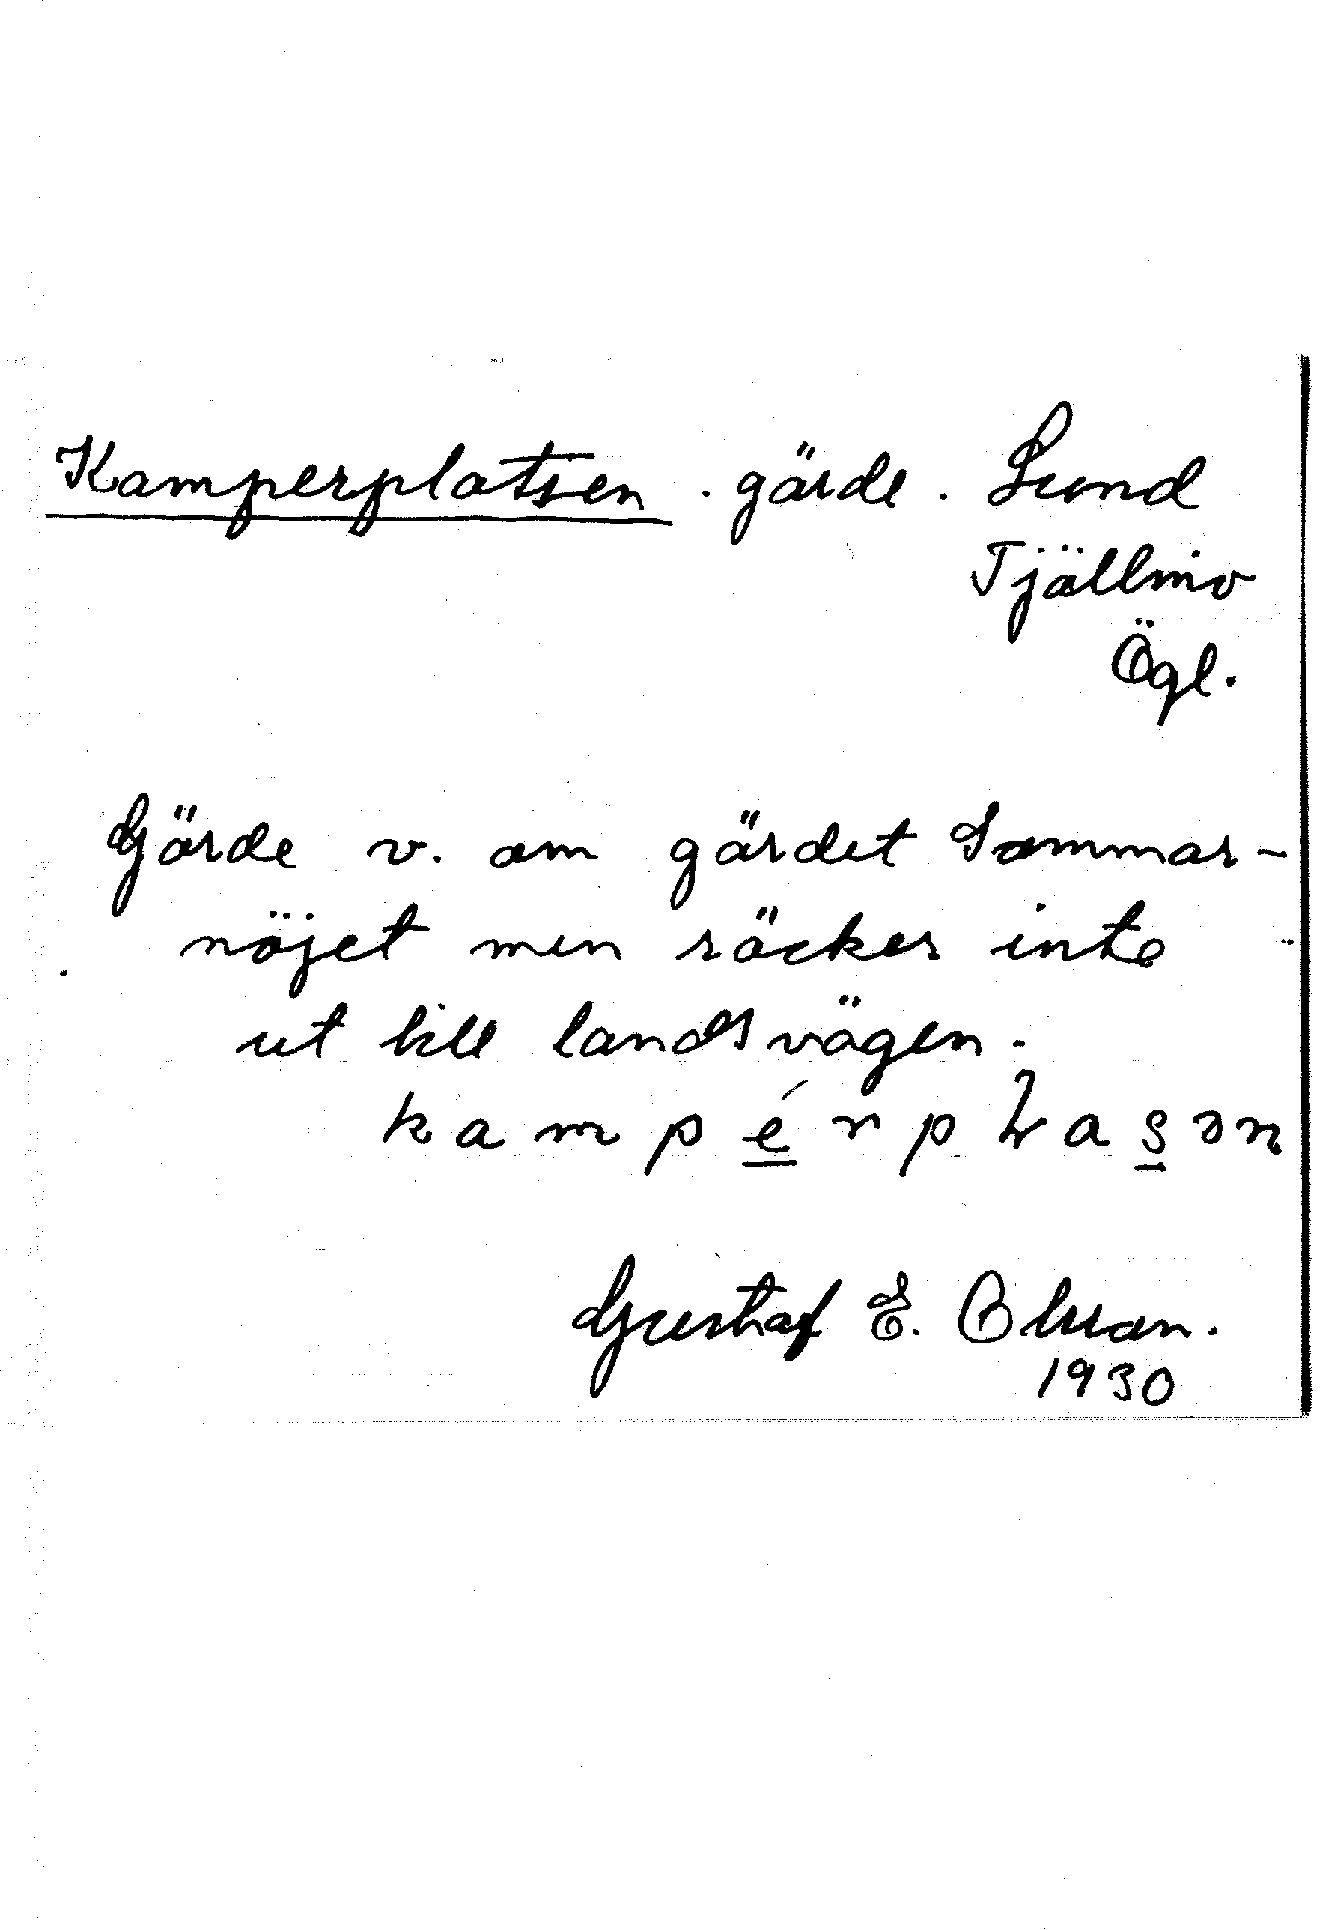 Kamperplatsen . gärde . Lund
Tjällmo
Ögl.
Gärde v. om gärdet Sommar-
nöjet men räcker inte
ut till landsvägen.
Gustaf E. Olsson.
1930